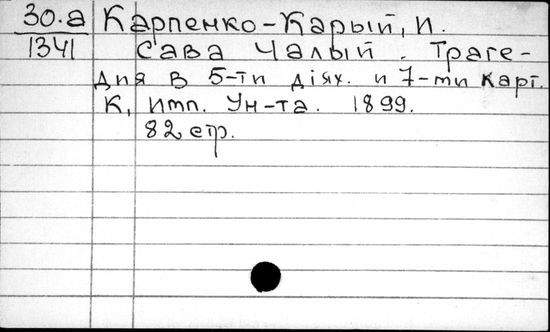 30.а Карпенко-Карый, И.
1341 Сава Чалый. Траге-
дия в 5-ти діях. и 7-ми карт.
К, Имп. Ун-та. 1899.
82 стр.